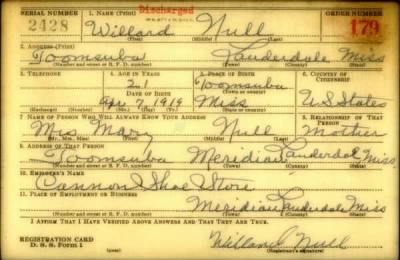 SERIAL NUMBER 1. NAME (Print) Discharged ORDER NUMBER
2428 Willard Null 179
(First) (Middle) (Last)
2. ADDRESS (Print)
Toomsuba Lauderdale Miss
(Number and street or R. F. D. number) (Town) (County) (State)
3. TELEPHONE 4. AGE IN YEARS 5. PLACE OF BIRTH 6. COUNTRY OF CITIZENSHIP
21 Toomsuba
DATE OF BIRTH (Town or county)
Apr 7, 1919 Miss U S States
(Exchange) (Number) (Mo.) (Day) (Yr.) (State or country)
7. NAME OF PERSON WHO WILL ALWAYS KNOW YOUR ADDRESS 8. RELATIONSHIP OF THAT PERSON
Mrs Mary Null Mother
(Mr., Mrs., Miss) (First) (Middle) (Last)
9. ADDRESS OF THAT PERSON
Toomsuba Meridian Lauderdale Miss
(Number and street or R. F. D. number) (Town) (County) (State)
10. EMPLOYER'S NAME
Cannon Shoe Store
11. PLACE OF EMPLOYMENT OR BUSINESS
Meridian Lauderdale Miss
(Number and street or R. F. D. number) (Town) (County) (State)
I AFFIRM THAT I HAVE VERIFIED ABOVE ANSWERS AND THAT THEY ARE TRUE.
REGISTRATION CARD
D. S. S. FORM 1 Willard Null
(Registrant's signature)